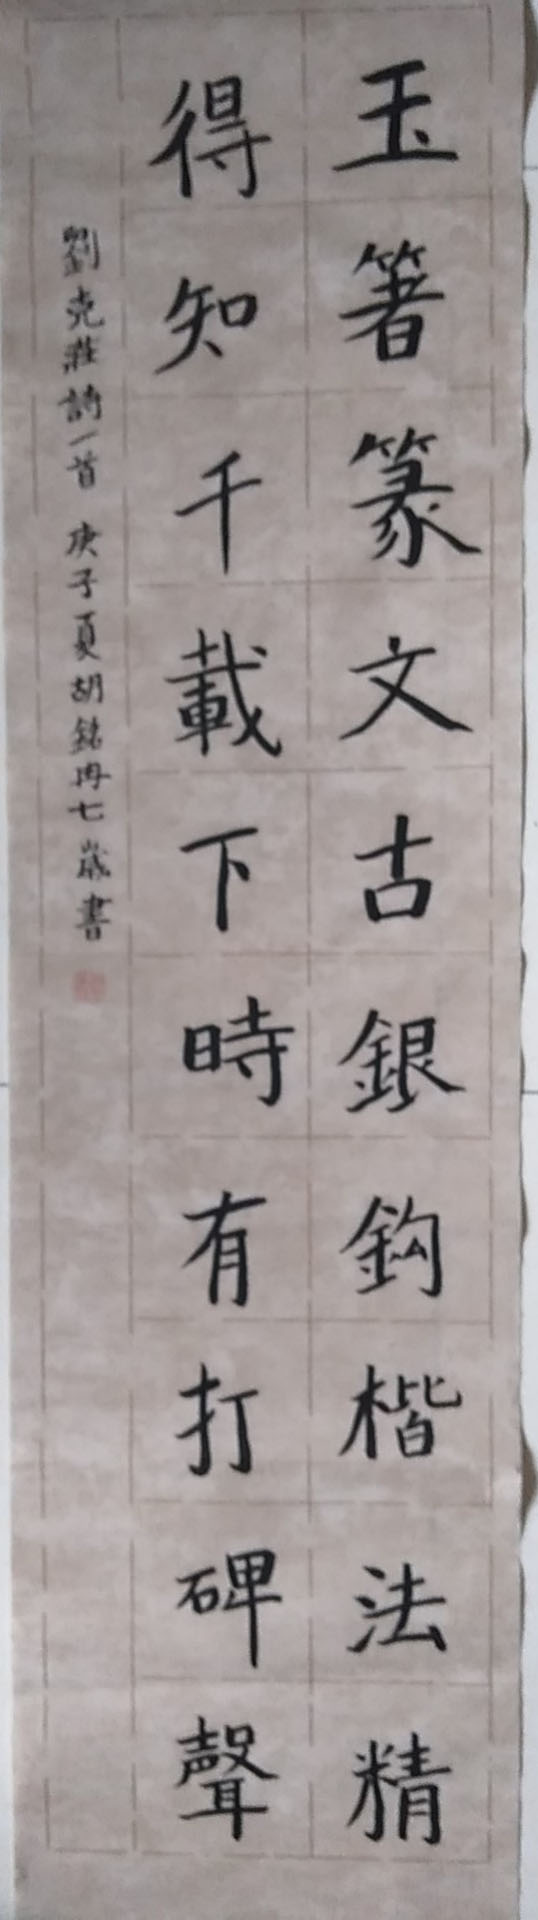 玉箸篆文古銀鈎楷法精
得知千載下時有打碑聲
劉克莊詩一首 庚子夏胡銘冉七歲書